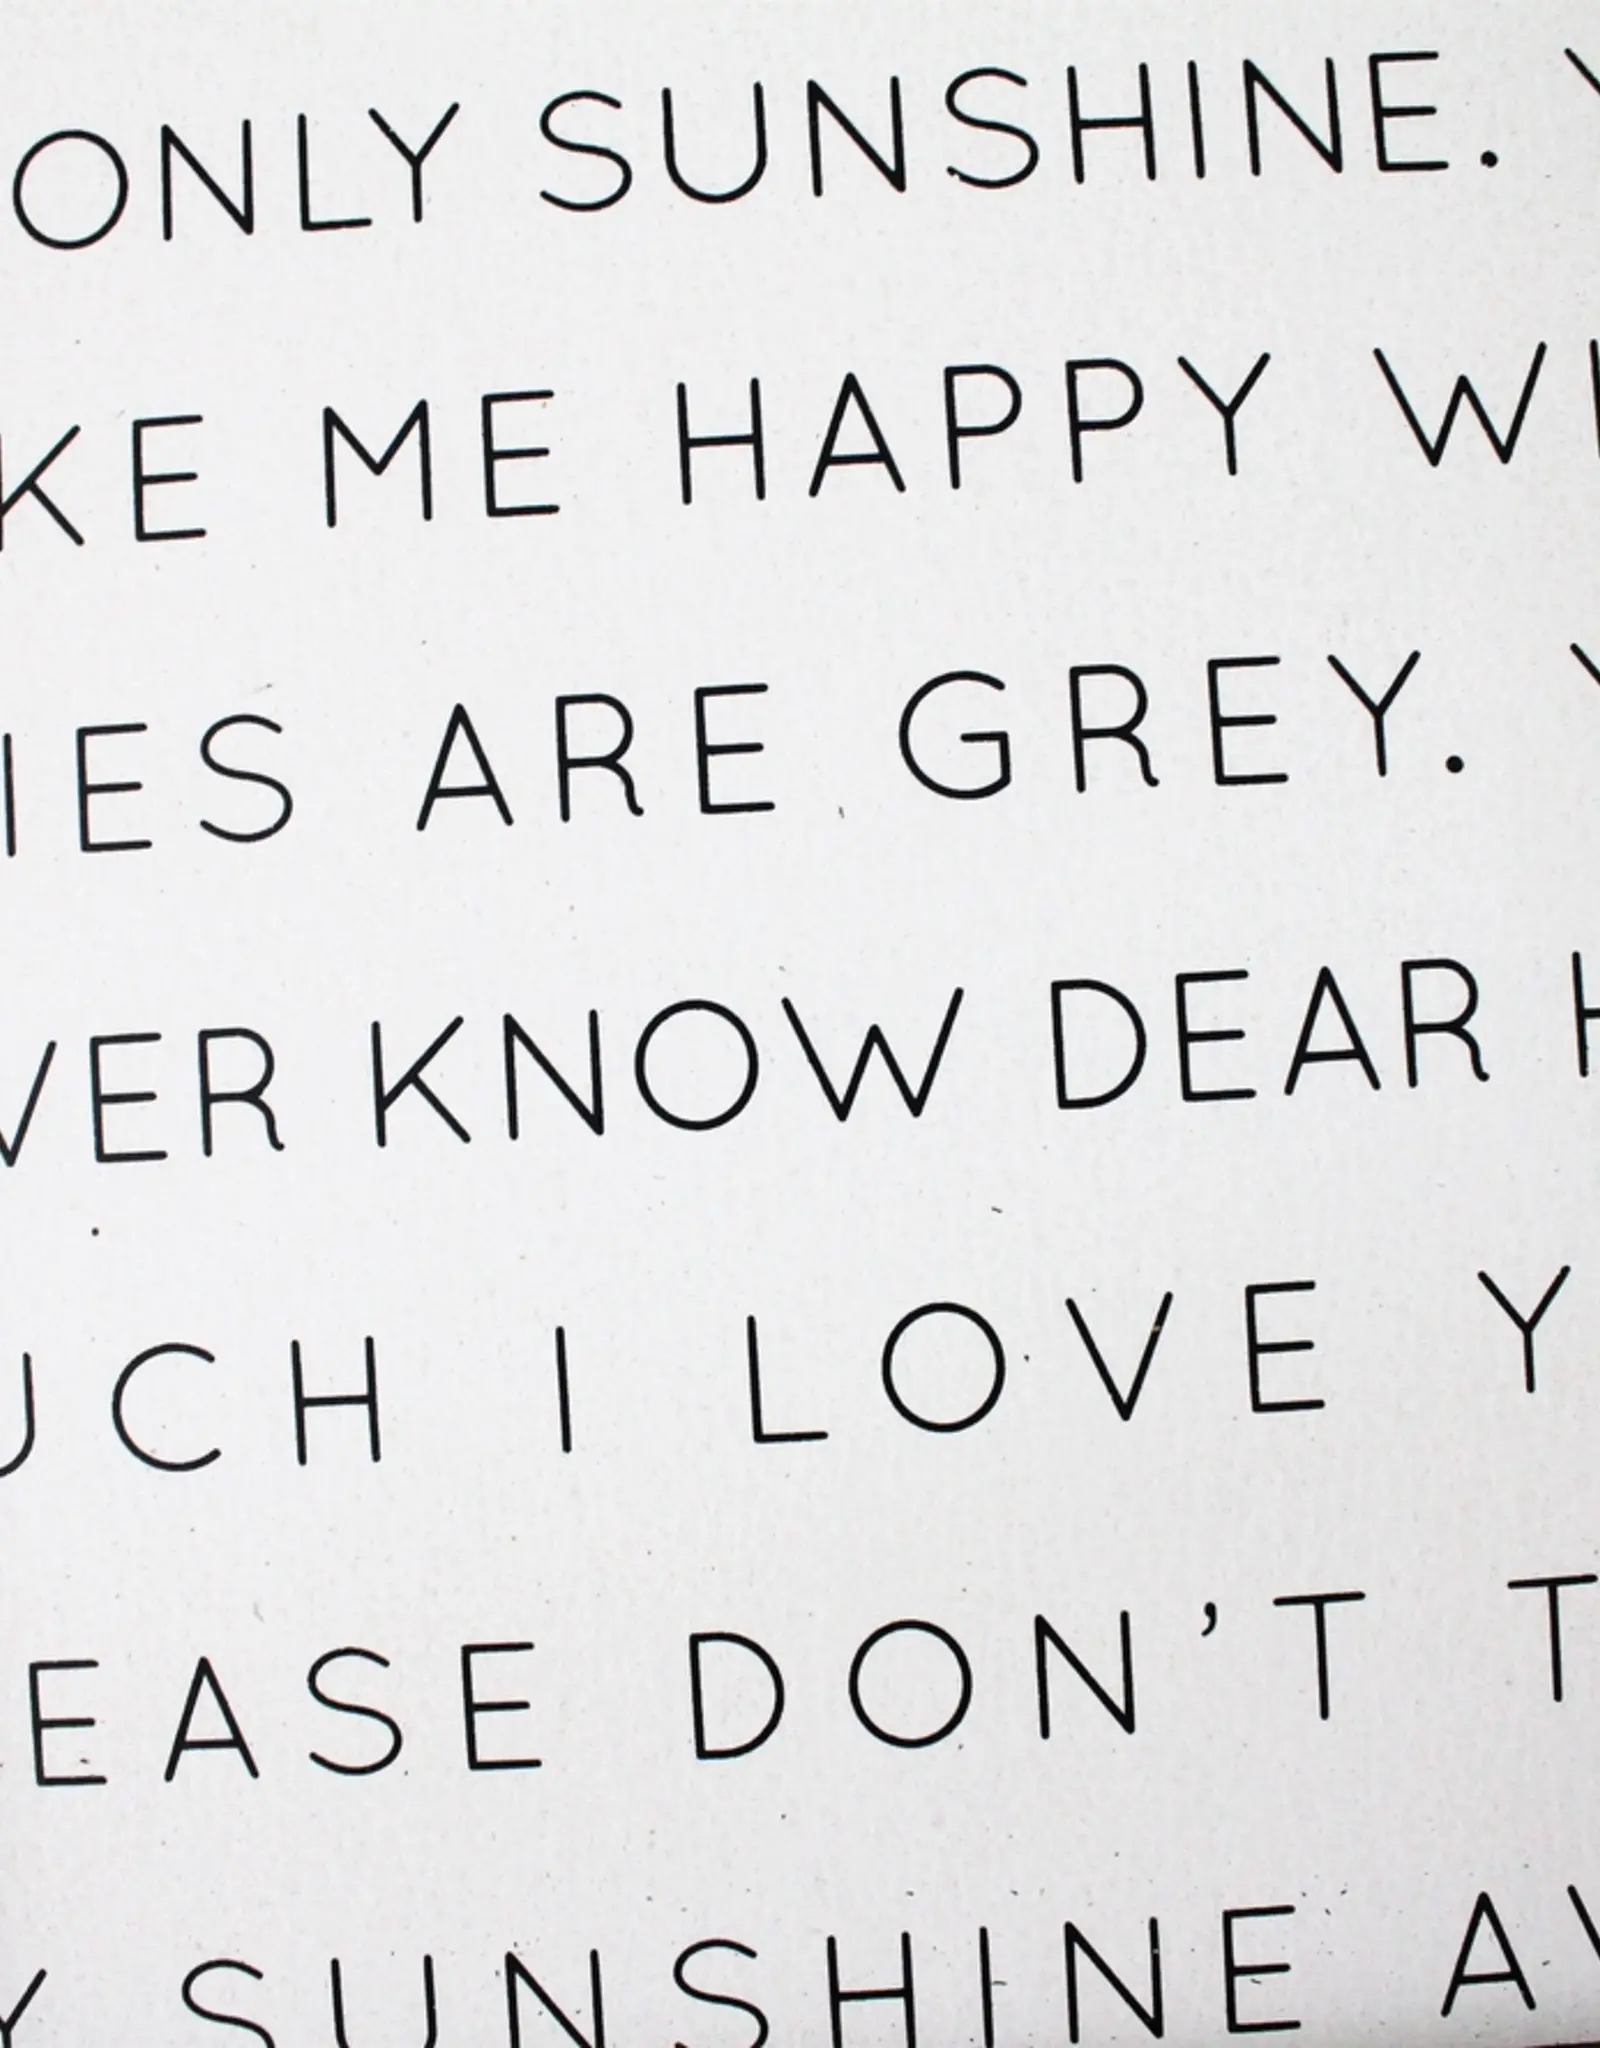 ONLY SUNSHINE. Y
KE ME HAPPY WH
IES ARE GREY. Y
VER KNOW DEAR H
UCH I LOVE Y
EASE DON'T T
Y SUNSHINE AW